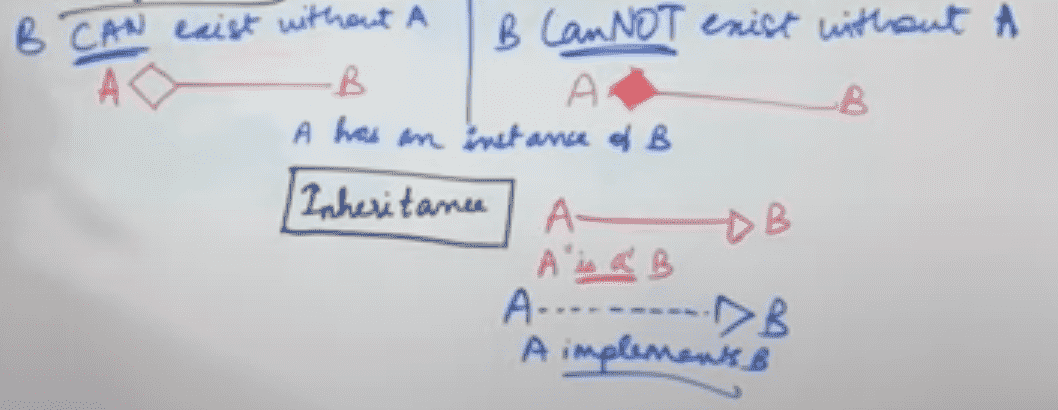 B CAN exist without A
B CanNOT exist without A
A B
A B
A has an instance of B
Inheritance
A B
A "is a" B
A B
A implements B